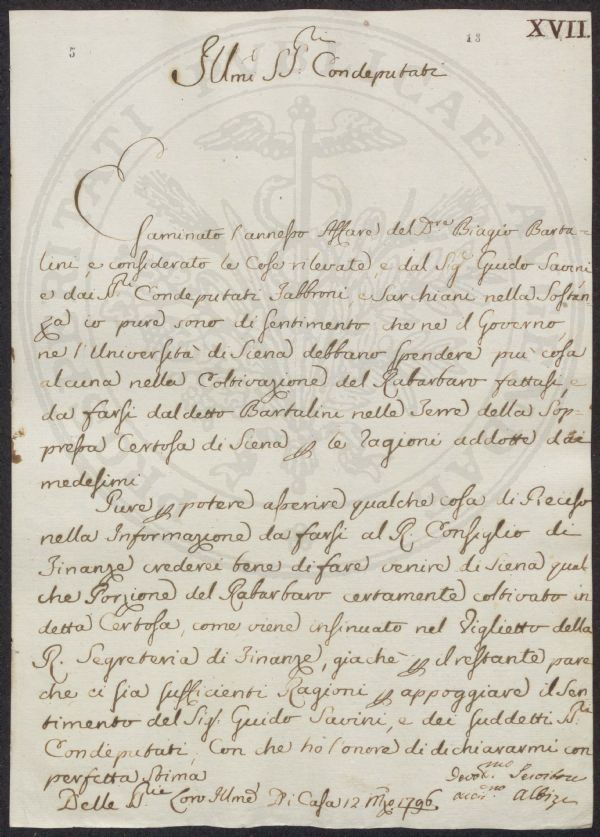 XVII.
5
13
Illmi SS.ri Condeputati
Esaminato l'annesso Affare del D.ore Biagio Barta-
lini, e considerato le Cose rilevate, e dal Sig.r Guido Savini
e dai SS.ri Condeputati Fabbroni e Sarchiani nella Sostan-
za io pure sono di sentimento che ne il Governo,
ne l'Università di Siena debbano spendere più cosa
alcuna nella Coltivazione del Rabarbaro fattasi, e
da farsi dal detto Bartalini nelle Terre della Sop-
pressa Certosa di Siena p le ragioni addotte dai
medesimi
Pure p potere asserire qualche cosa di Preciso
nella Informazione da farsi al R. Consiglio di
Finanze crederei bene di fare venire di Siena qual
che Porzione del Rabarbaro certamente coltivato in
detta Certosa, come viene insinuato nel Viglietto della
R. Segreteria di Finanze, giachè p il restante pare
che ci sia sufficienti Ragioni p appoggiare il Sen
timento del Sig.r Guido Savini, e dei suddetti SS.ri
Condeputati, Con che hò l'onore di dichiararmi con
perfetta stima
Delle SS.rie Loro Illme Di Casa 12 Mzo 1796
Devot.mo Servitore
Albizi